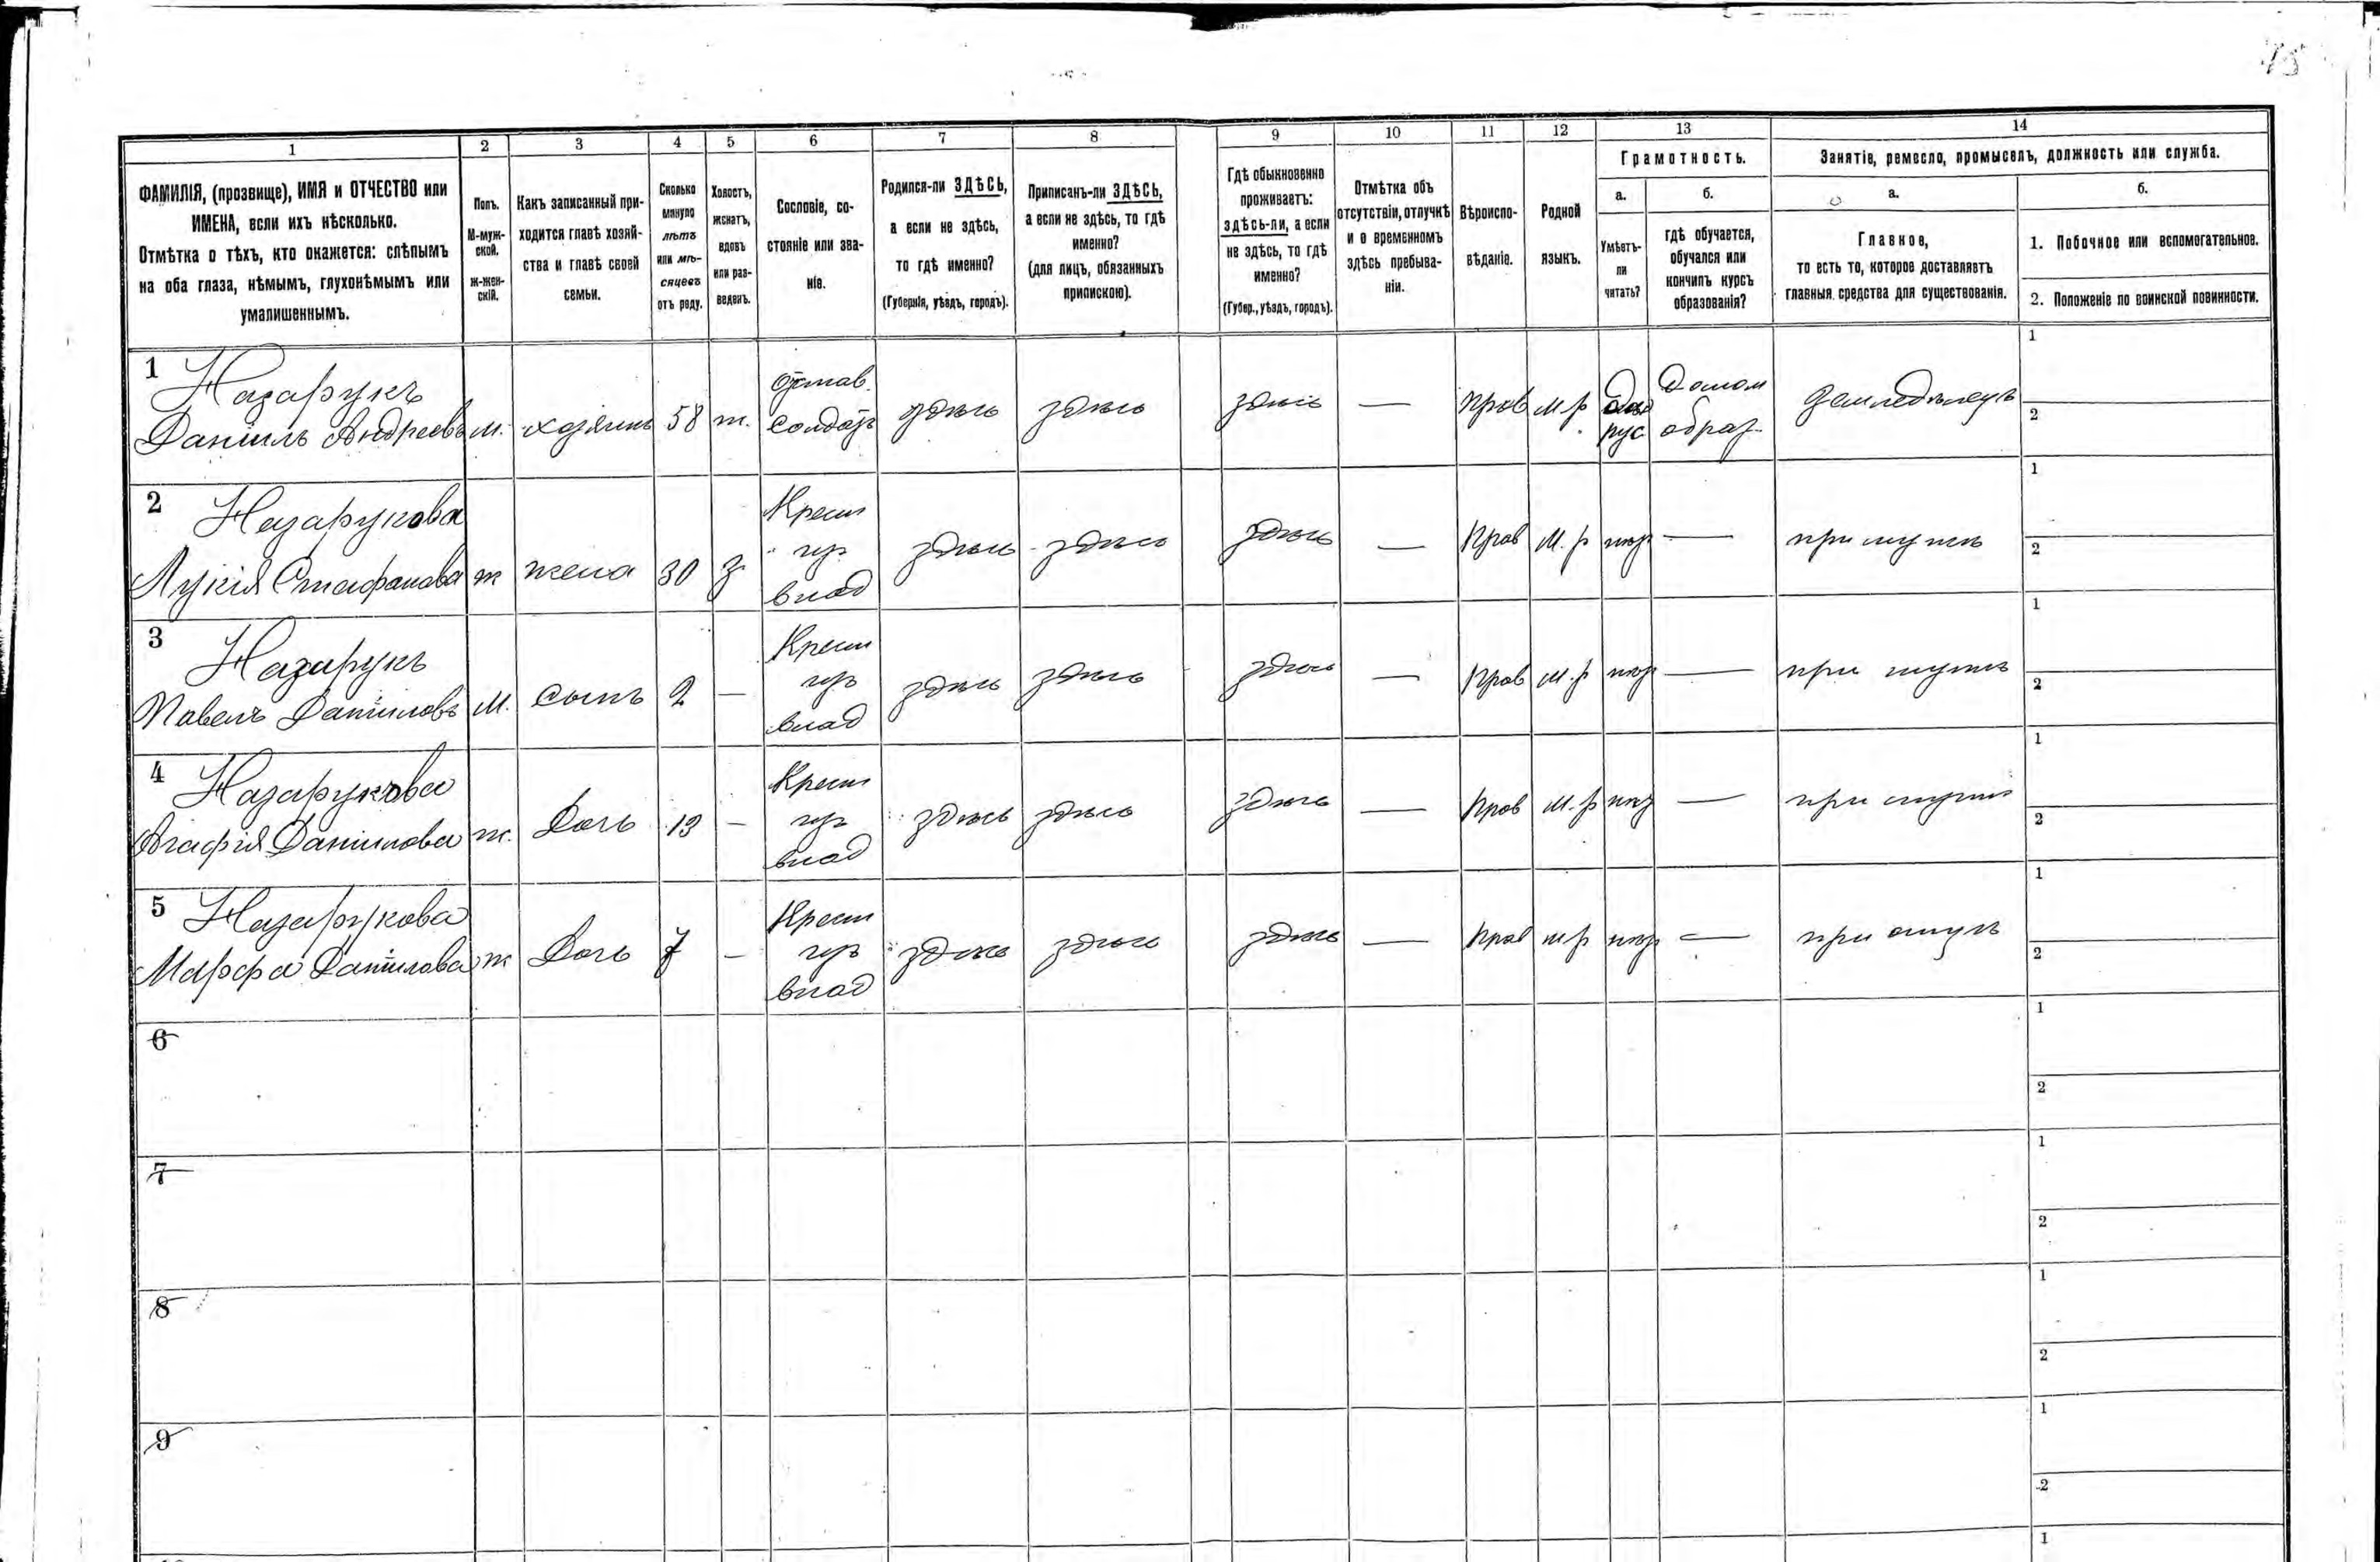 75
1 2 3 4 5 6 7 8 9 10 11 12 13 14
ФАМИЛІЯ, (прозвище), ИМЯ и ОТЧЕСТВО или
ИМЕНА, если ихъ нѣсколько.
Отмѣтка о тѣхъ, кто окажется: слѣпымъ
на оба глаза, нѣмымъ, глухонѣмымъ или
умалишеннымъ.
Полъ.
М-муж-
ской.
ж-жен-
скій.
Какъ записанный при-
ходится главѣ хозяй-
ства и главѣ своей
семьи.
Сколько
минуло
лѣтъ
или мѣ-
сяцевъ
отъ роду.
Холостъ,
женатъ,
вдовъ
или раз-
веденъ.
Сословіе, со-
стояніе или зва-
ніе.
Родился-ли ЗДѢСЬ,
а если не здѣсь,
то гдѣ именно?
(Губернія, уѣздъ, городъ).
Приписанъ-ли ЗДѢСЬ,
а если не здѣсь, то гдѣ
именно?
(для лицъ, обязанныхъ
припискою).
Гдѣ обыкновенно
проживаетъ:
здѣсь-ли, а если
не здѣсь, то гдѣ
именно?
(Губер., уѣздъ, городъ).
Отмѣтка объ
отсутствіи, отлучкѣ
и о временномъ
здѣсь пребыва-
ніи.
Вѣроиспо-
вѣданіе.
Родной
языкъ.
Грамотность.
а.
Умѣетъ-
ли
читать?
б.
гдѣ обучается,
обучался или
кончилъ курсъ
образованія?
Занятіе, ремесло, промыселъ, должность или служба.
а.
Главное,
то есть то, которое доставляетъ
главныя средства для существованія.
б.
1. Побочное или вспомогательное.
2. Положеніе по воинской повинности.
1
Назарукъ
Даніилъ Андреевъ
м.
хозяинъ
58
ж.
Отстав.
солдатъ
здѣсь
здѣсь
здѣсь
—
прав
м р
рус
Домом
образ
земледѣлецъ
1
2
2
Назарукова
Лукія Стефанова
ж
жена
30
з
Крест
изъ
влад
здѣсь
здѣсь
здѣсь
—
прав
м. р
нѣт
—
при мужѣ
1
2
3
Назарукъ
Павелъ Даніиловъ
м.
сынъ
2
—
Крест
изъ
влад
здѣсь
здѣсь
здѣсь
—
прав
м. р
нѣт
—
при отцѣ
1
2
4
Назарукова
Агафія Даніилова
ж.
Дочь
13
—
Крест
изъ
влад
здѣсь
здѣсь
здѣсь
—
прав
м. р
нѣт
—
при отцѣ
1
2
5
Назарукова
Марфа Даніилова
ж
Дочь
7
—
Крест
изъ
влад
здѣсь
здѣсь
здѣсь
—
прав
м р
нѣт
—
при отцѣ
1
2
6
1
2
7
1
2
8
1
2
9
1
2
1